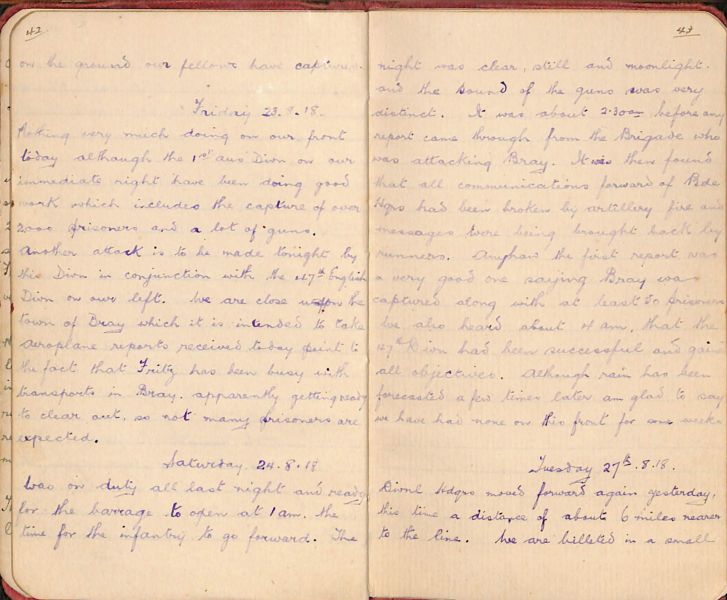 42
on the ground our fellows have captured.
Friday 23.8.18.
Nothing very much doing on our front
today although the 1st aus Divn on our
immediate right have been doing good
work which includes the capture of over
2000 prisoners and a lot of guns.
Another attack is to be made tonight by
this Divn in conjunction with the 47th English
Divn on our left. We are close upon the
town of Bray which it is intended to take
Aeroplane reports received today point to
the fact that Fritz has been busy with
transports in Bray. apparently getting ready
to clear out, so not many prisoners are
expected.
Saturday 24.8.18
Was on duty all last night and ready
for the barrage to open at 1 am. the
time for the infantry to go forward. The
43
night was clear, still and moonlight.
and the sound of the guns was very
distinct. It was about 2.30am before any
report came through from the Brigade who
was attacking Bray. It was then found
that all communications forward of Bde
Hqrs had been broken by artillery fire and
messages were being brought back by
runners. Anyhow the first report was
a very good one saying Bray was
captured along with at least 80 prisoners
We also heard about 4 am. that the
47th Divn had been successful and gain
all objectives. Although rain has been
forecasted a few times later am glad to say
we have had none on this front for some weeks
Tuesday 27th.8.18.
Divnl Hdqrs moved forward again yesterday,
this time a distance of about 6 miles nearer
to the line. We are billeted in a small